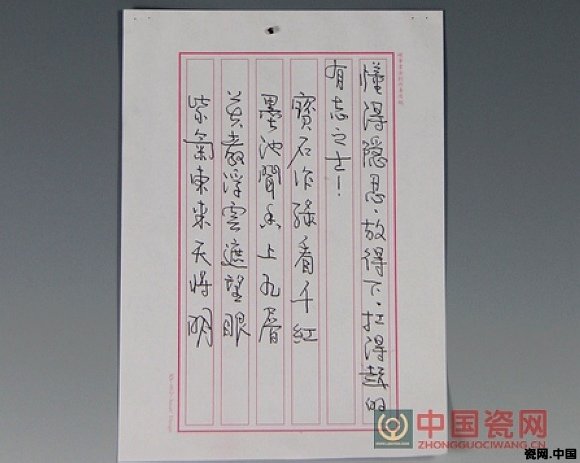 懂得隐忍.放得下.扛得起的
有志之士!
寳石作彩看千紅
墨池聞香上九層
莫教浮雲遮望眼
紫氣東来天将明
中国瓷网
ZHONGGUOCIWANG.CN
瓷网.中国